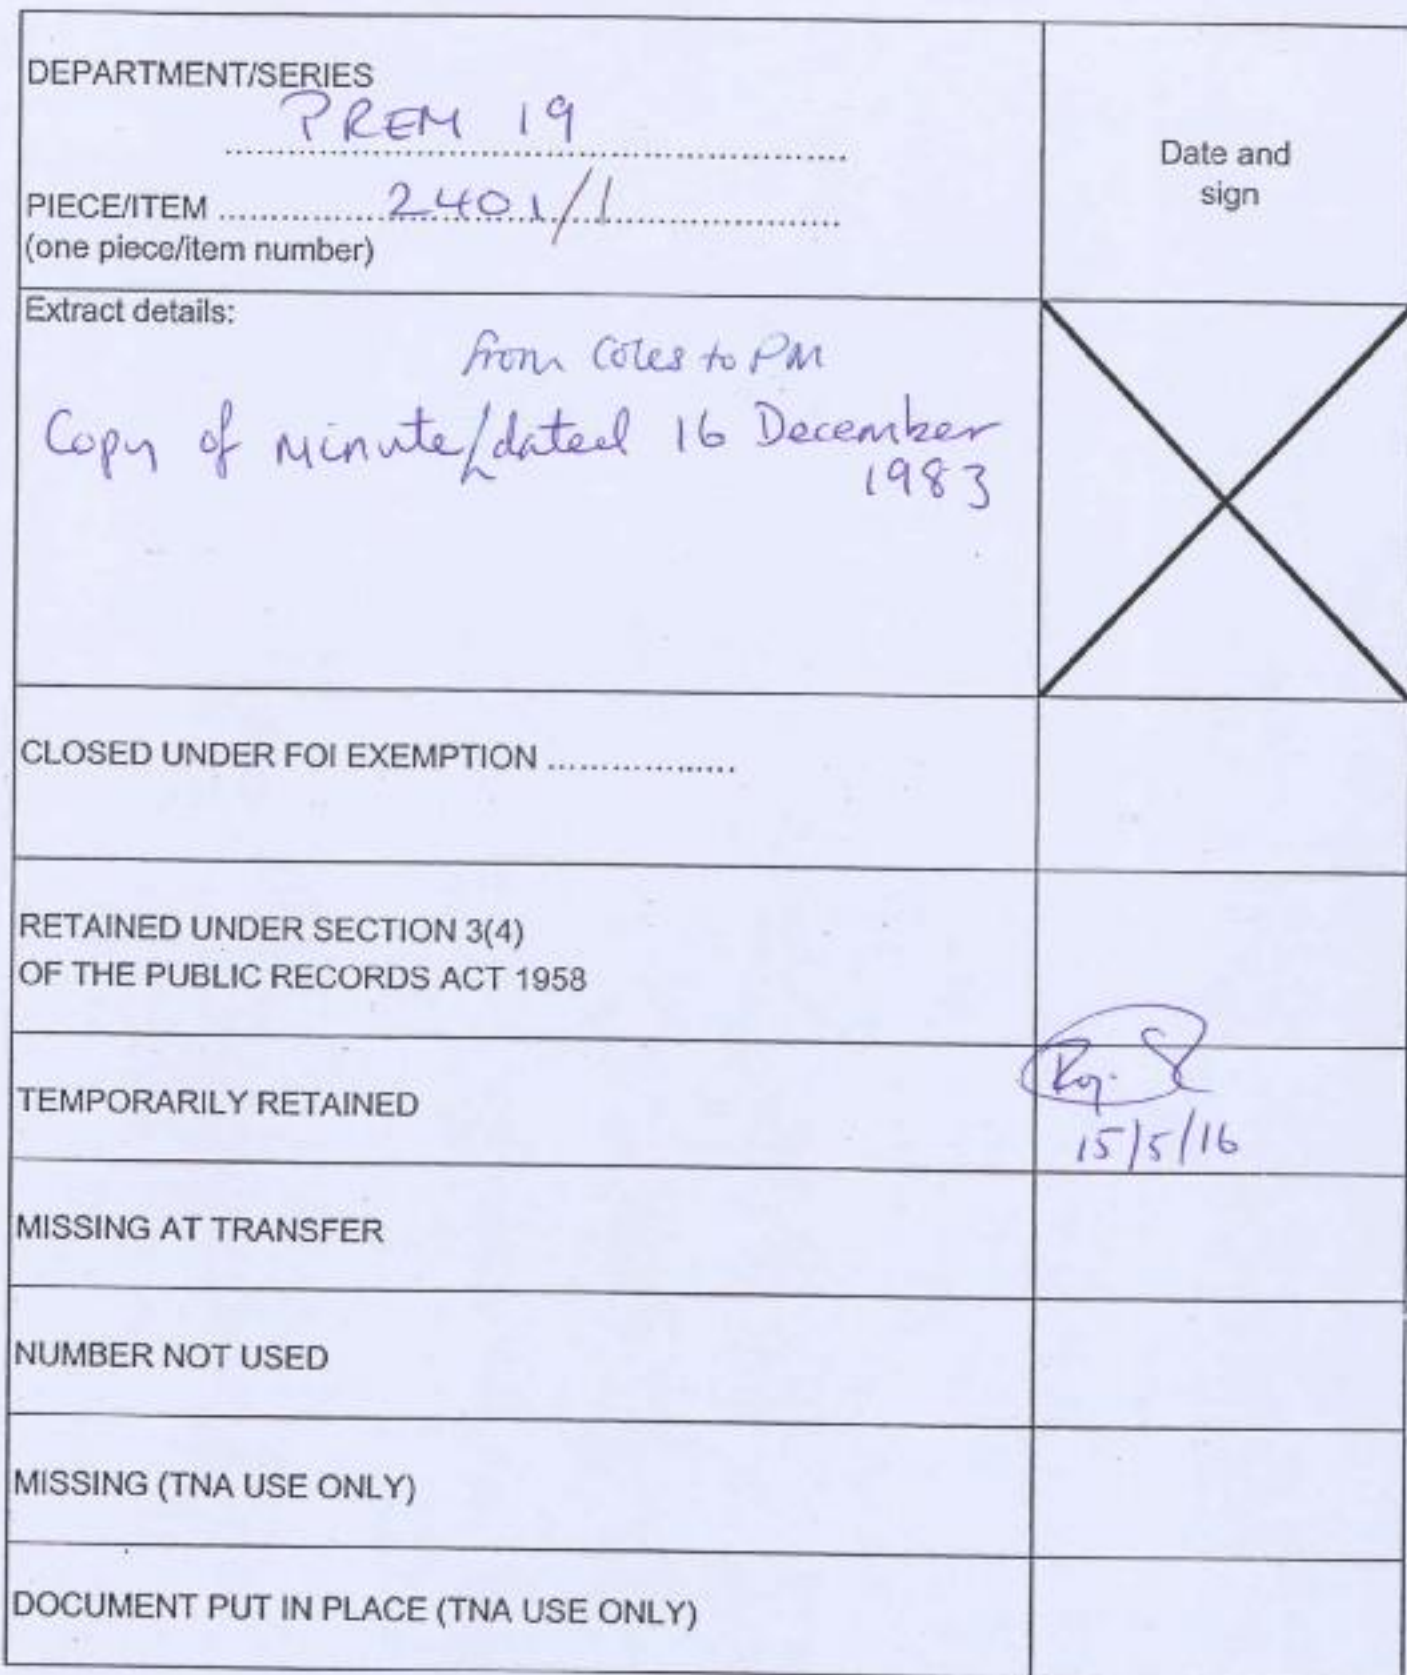 DEPARTMENT/SERIES
PREM 19
Date and
sign
PIECE/ITEM 2401/1
(one piece/item number)
Extract details:
from Coles to PM
Copy of minute dated 16 December
1983
CLOSED UNDER FOI EXEMPTION
RETAINED UNDER SECTION 3(4)
OF THE PUBLIC RECORDS ACT 1958
TEMPORARILY RETAINED
15/5/16
MISSING AT TRANSFER
NUMBER NOT USED
MISSING (TNA USE ONLY)
DOCUMENT PUT IN PLACE (TNA USE ONLY)